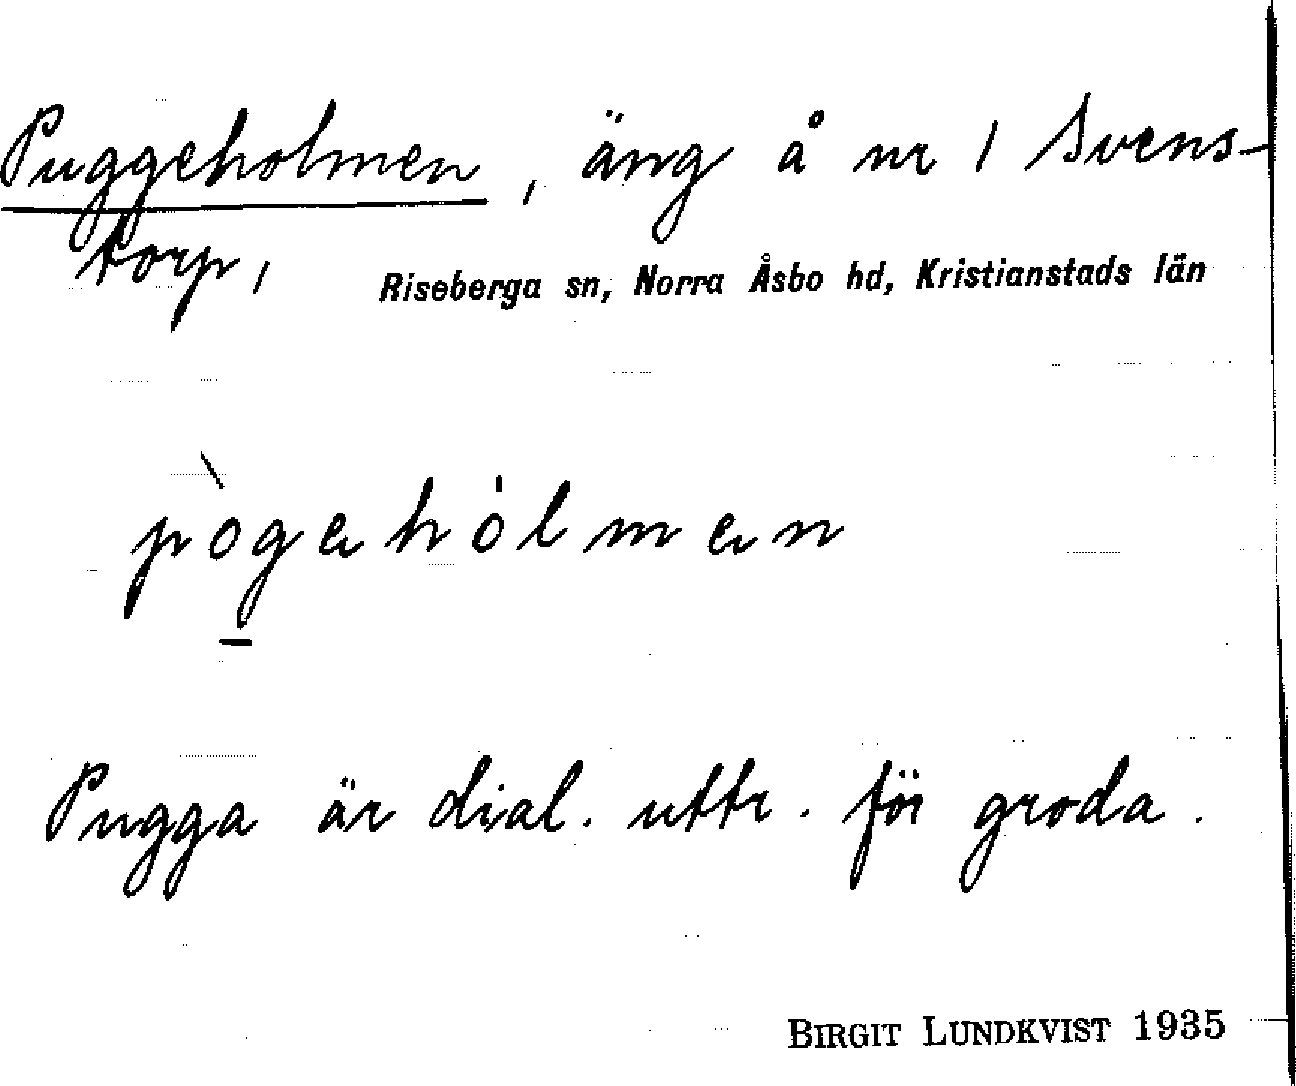 Puggeholmen, äng å nr 1 Svens-
torp,
Riseberga sn, Norra Åsbo hd, Kristianstads län
pògəhólmən
Pugga är dial. uttr. för groda.
BIRGIT LUNDKVIST 1935